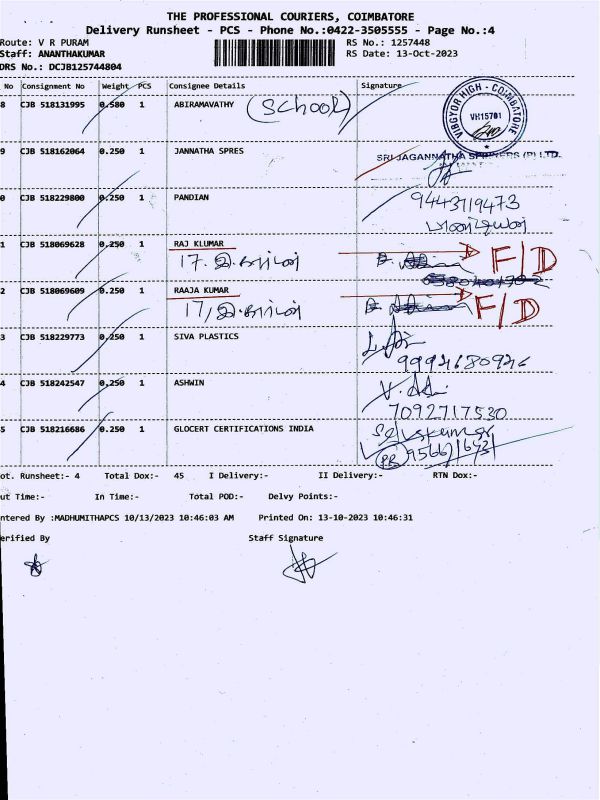 THE PROFESSIONAL COURIERS, COIMBATORE
Delivery Runsheet - PCS - Phone No.:0422-3505555 - Page No.:4
Route: V R PURAM
RS No.: 1257448
Staff: ANANTHAKUMAR
RS Date: 13-Oct-2023
DRS No.: DCJB125744804
No Consignment No Weight PCS Consignee Details Signature
8 CJB 518131995 0.580 1 ABIRAMAVATHY (SCHOOL)
VIBGYOR HIGH - COIMBATORE
VH15701
9 CJB 518162064 0.250 1 JANNATHA SPRES
SRI JAGANNATHA SPINNERS (P) LTD.
0 CJB 518229800 0.250 1 PANDIAN 9443119473
1 CJB 518069628 0.250 1 RAJ KLUMAR F/D
2 CJB 518069609 0.250 1 RAAJA KUMAR F/D
3 CJB 518229773 0.250 1 SIVA PLASTICS
9994680946
4 CJB 518242547 0.250 1 ASHWIN
7092717530
5 CJB 518216686 0.250 1 GLOCERT CERTIFICATIONS INDIA Selvakumar
ot. Runsheet:- 4 Total Dox:- 45 I Delivery:- II Delivery:- RTN Dox:-
ut Time:- In Time:- Total POD:- Delvy Points:-
ntered By :MADHUMITHAPCS 10/13/2023 10:46:03 AM Printed On: 13-10-2023 10:46:31
erified By Staff Signature